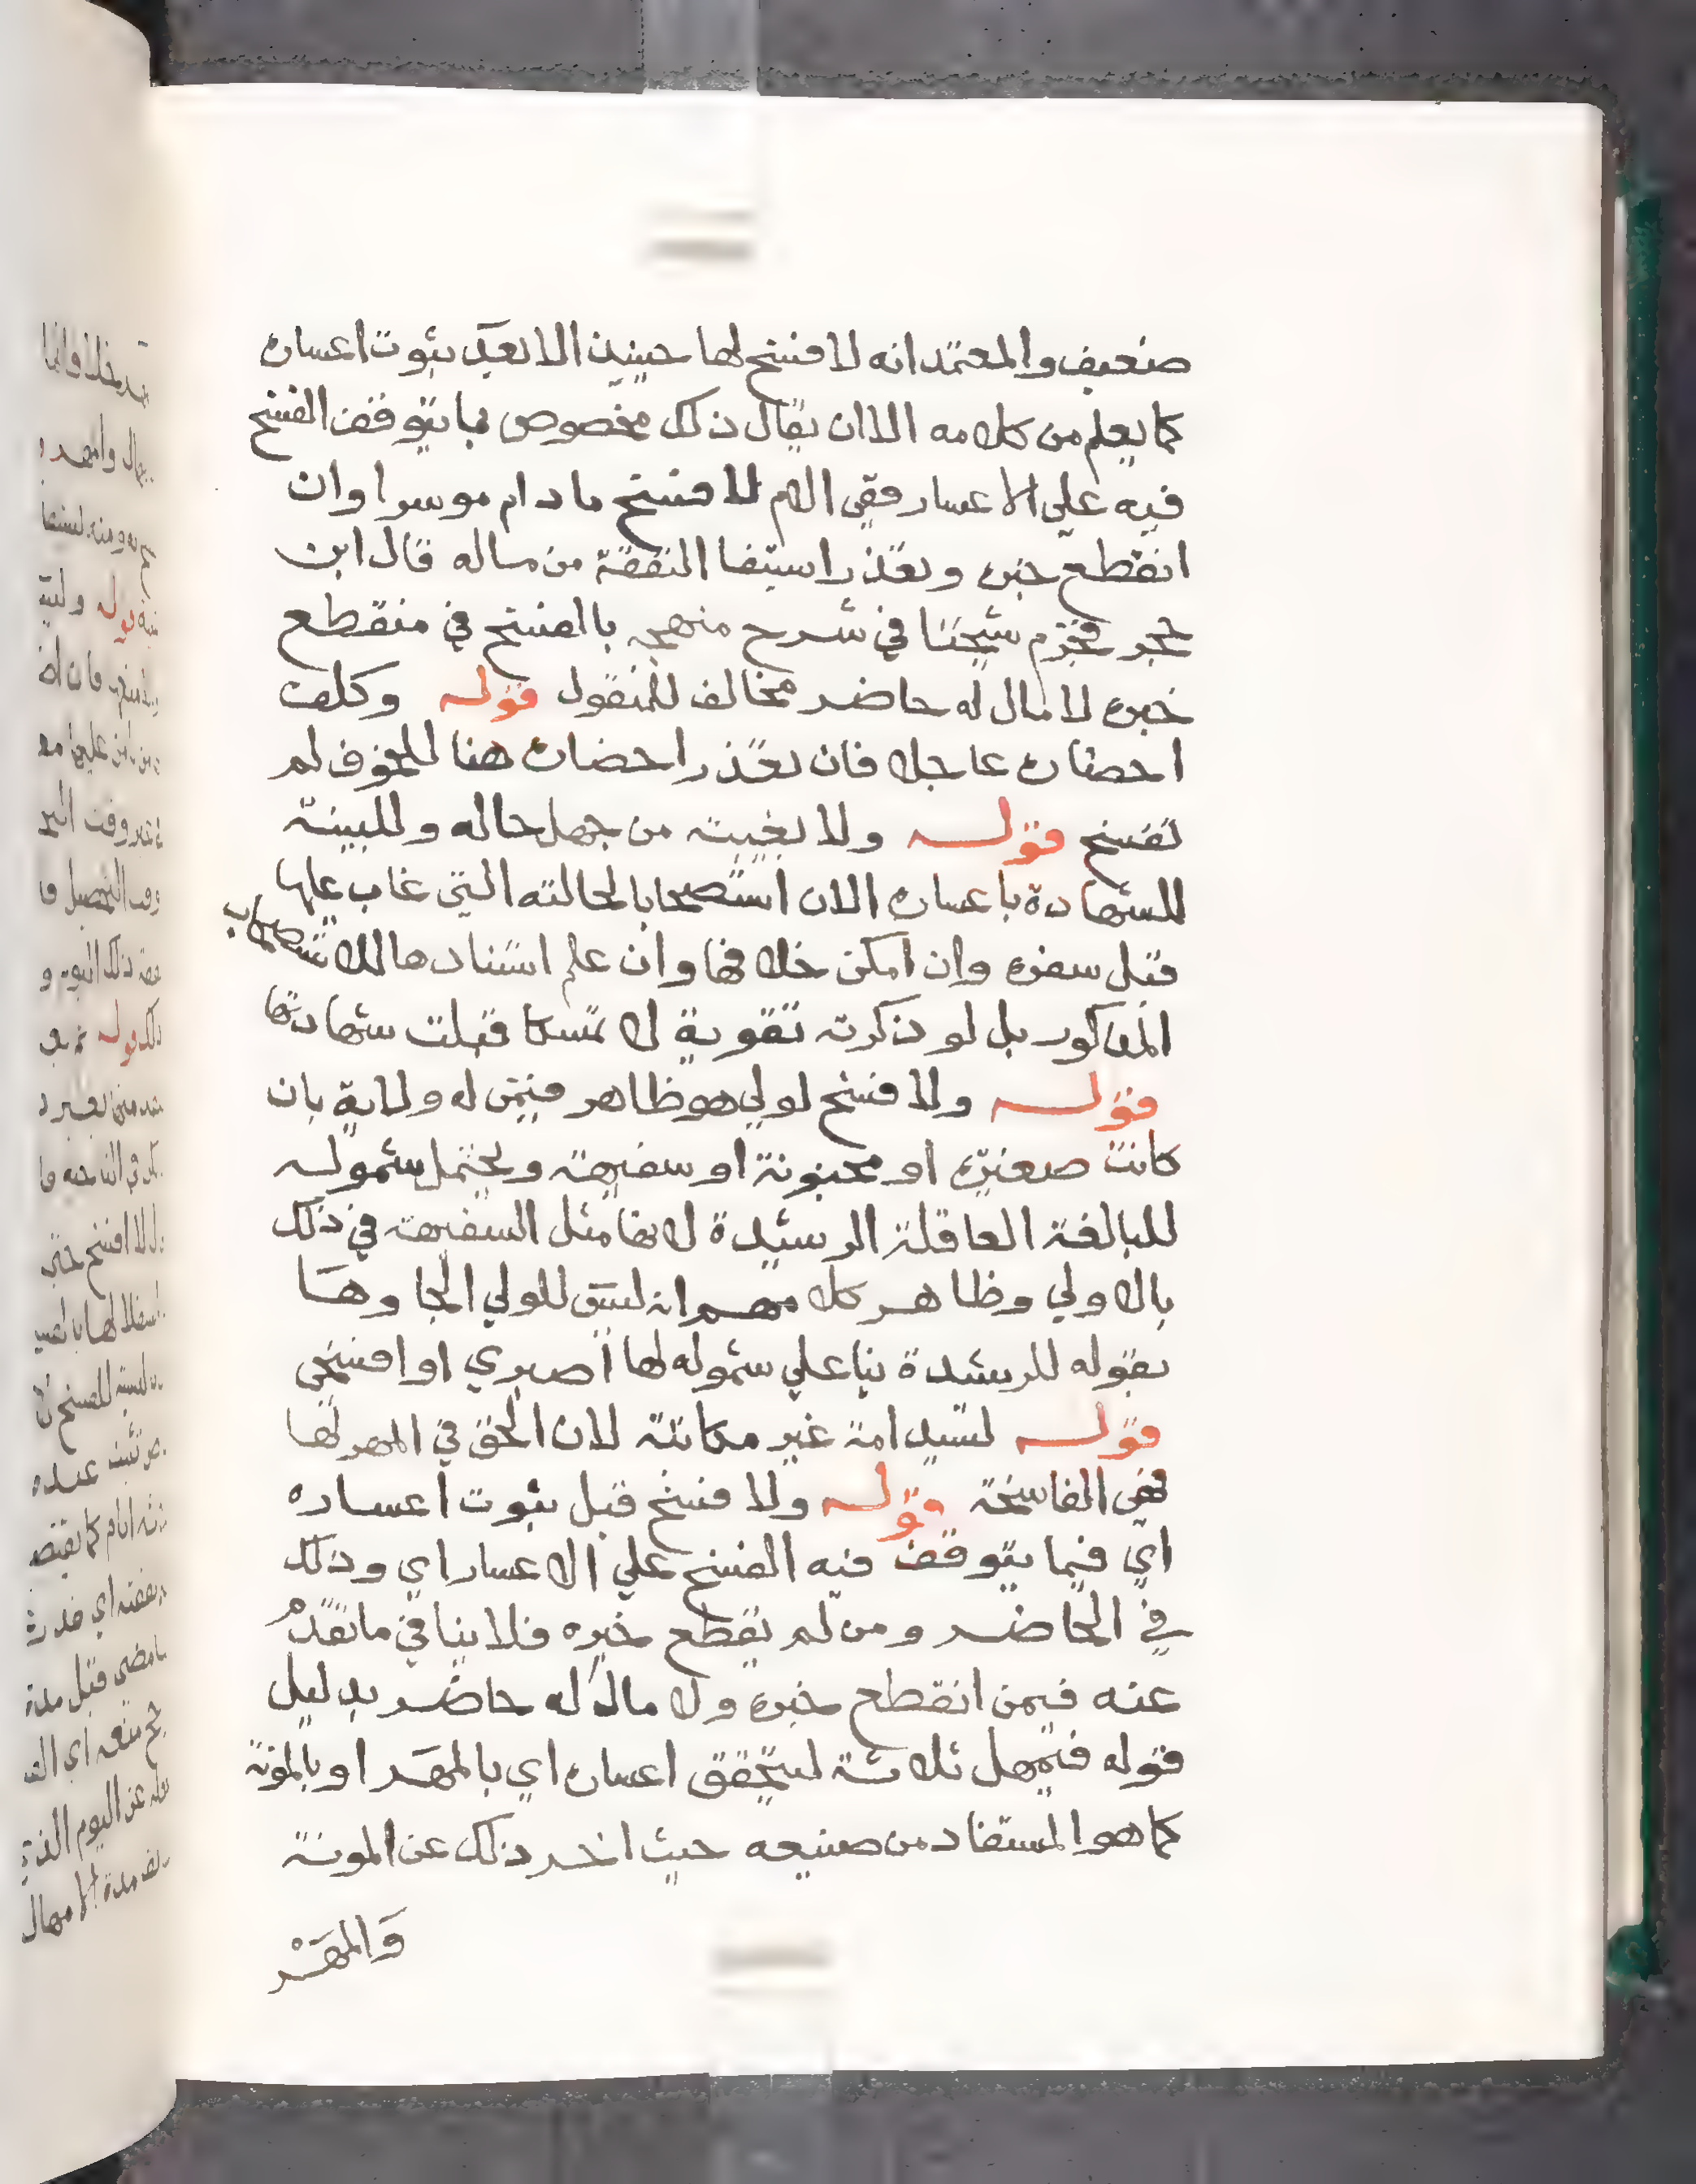 ضعيف والمعتمد انه لا فسخ لها حينيذ الا بعد ثبوت اعساره
كما يعلم من كلامه الا ان يقال ذلك مخصوص بما يتوقف الفسخ
فيه علي الاعسار ففي الام لا فسخ ما دام موسرا وان
انقطع خبره وتعذر استيفا النفقة من ماله قال ابن
حجر فجزم شيخنا في شرح منهجه بالفسخ في منقطع
خبره لا مال له حاضر مخالف للمنقول قوله وكلف
احضاره عاجلا فان تعذر احضاره هنا للخوف لم
تفسخ قوله ولا بغيبته من جهل حاله وللبينة
الشهادة باعساره الان استصحابا لحالته التي غاب عليها
قبل سفره وان امكن خلافها وان علم استنادها للاستصحاب
المذكور بل لو ذكرته تقوية لا تمسكا قبلت شهادتها
قوله ولا فسخ لولي هو ظاهر فيمن له ولاية بان
كانت صغيرة او مجنونة او سفيهة ويحتمل شموله
للبالغة العاقلة الرشيدة لانها مثل السفيهة في ذلك
بالاولي وظاهر كلامهم انه ليس للولي الجاوها
بقوله للرشيدة بنا علي شموله لها اصبري او افسخي
قوله لسيد امة غير مكاتبة لان الحق في المهر لها
فهي الفاسخة قوله ولا فسخ قبل ثبوت اعساره
اي فيما يتوقف فيه الفسخ علي الاعسار اي وذلك
في الحاضر ومن لم ينقطع خبره فلا ينافي ما تقدم
عنه فيمن انقطع خبره ولا مال له حاضر بدليل
قوله فيمهل ثلاثة ليتحقق اعساره اي بالمهر او بالمونة
كما هو المستفاد من صنيعه حيث اخر ذلك عن المونة
والمهر